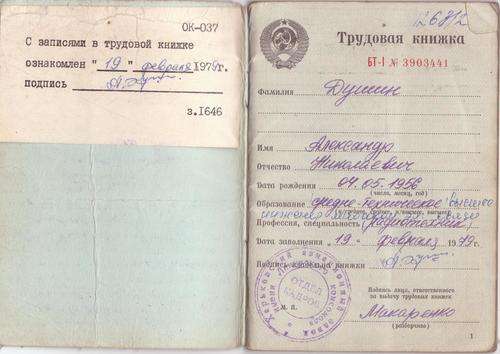 ОК-037
С записями в трудовой книжке
ознакомлен "19" февраля 1979г.
Подпись
з.1646
Трудовая книжка
БТ-I № 3903441
Фамилия Душин
Имя Александр
Отчество Николаевич
Дата рождения 04.05.1956
(число, месяц, год)
Образование средне-техническое высшее
Профессия, специальность (радиотехник)
Дата заполнения "19" февраля 1979 г.
Подпись владельца книжки
ОТДЕЛ
КАДРОВ
М. П.
Подпись лица, ответственного
за выдачу трудовых книжек
Макаренко
(разборчиво)
1